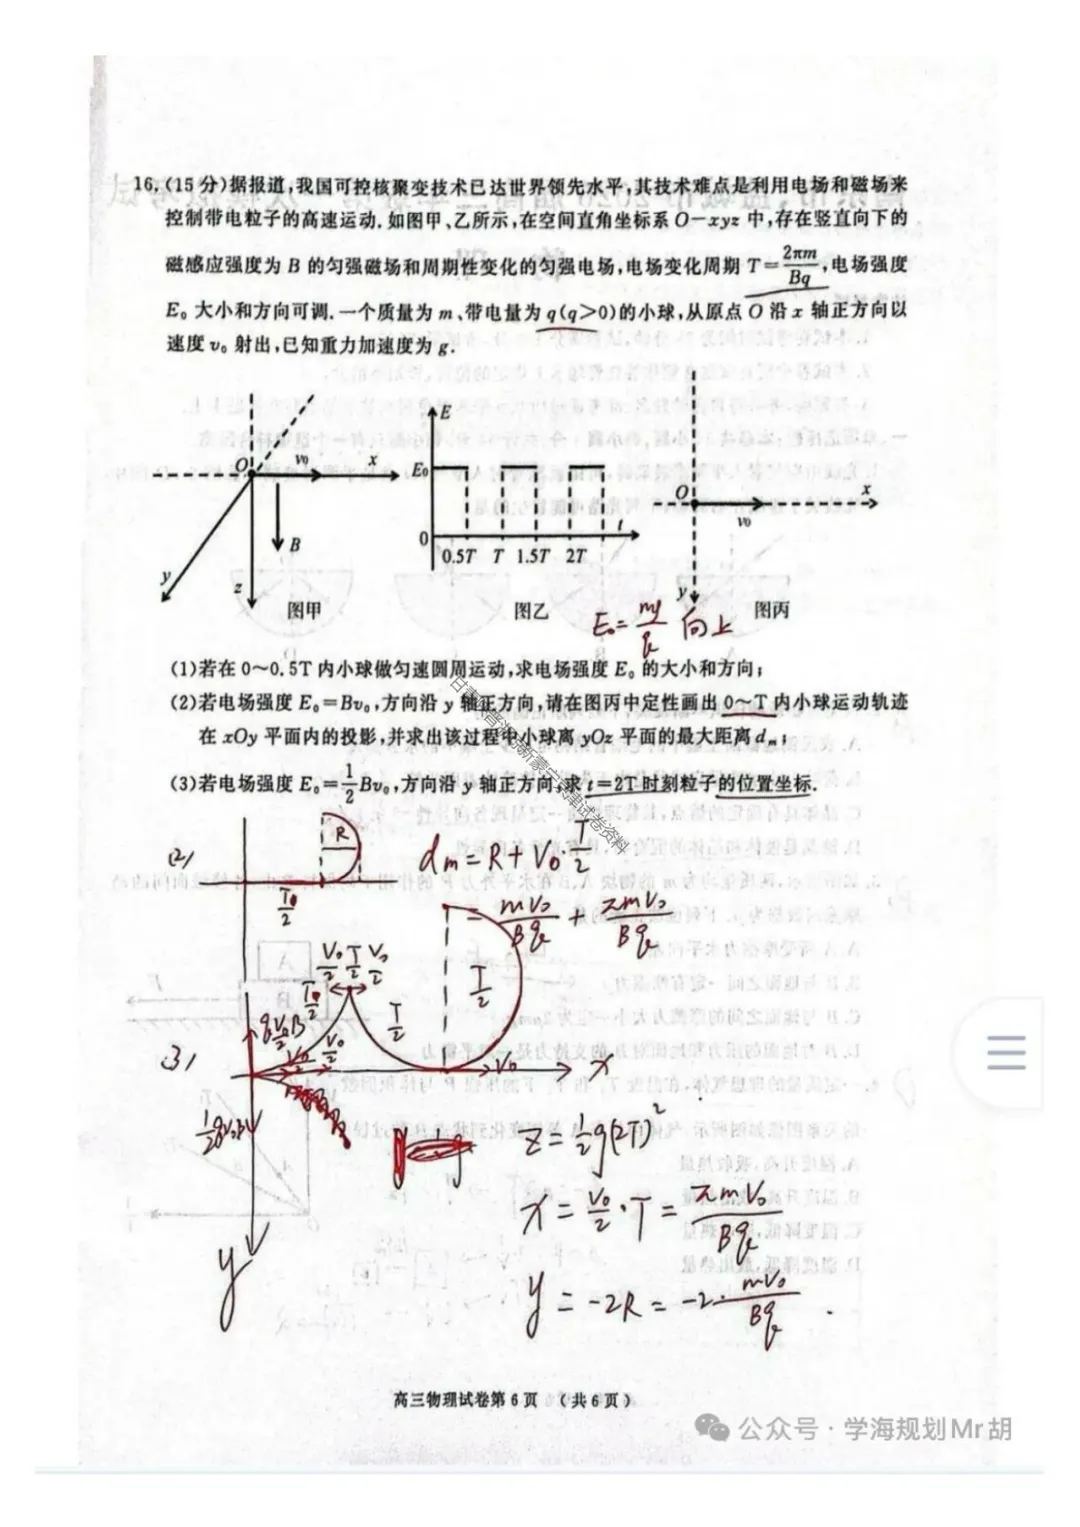 16.(15分)据报道,我国可控核聚变技术已达世界领先水平,其技术难点是利用电场和磁场来
控制带电粒子的高速运动.如图甲、乙所示,在空间直角坐标系O-xyz中,存在竖直向下的
磁感应强度为B的匀强磁场和周期性变化的匀强电场,电场变化周期T=2πm/Bq,电场强度
E₀大小和方向可调.一个质量为m、带电量为q(q>0)的小球,从原点O沿x轴正方向以
速度v₀射出,已知重力加速度为g.
O v₀ x
B
y z
图甲
E
E₀
0 t
0.5T T 1.5T 2T
图乙
O x
v₀
y
图丙
E₀=mg/q 向上
(1)若在0~0.5T内小球做匀速圆周运动,求电场强度E₀的大小和方向;
(2)若电场强度E₀=Bv₀,方向沿y轴正方向,请在图丙中定性画出0~T内小球运动轨迹
在xOy平面内的投影,并求出该过程中小球离yOz平面的最大距离dₘ;
(3)若电场强度E₀=1/2Bv₀,方向沿y轴正方向,求t=2T时刻粒子的位置坐标.
(2)
R
T/2
dm=R+V₀·T/2
=mV₀/Bq+πmV₀/Bq
V₀/2 T/2 V₀/2
T/2
T/2
T/2
qV₀/2B
V₀/2
V₀/2
(3)
V₀ x
1/2qV₀B
y
z=1/2g(2T)²
x=V₀/2·T=πmV₀/Bq
y=-2R=-2·mV₀/Bq.
高三物理试卷第6页 (共6页)
公众号·学海规划Mr胡